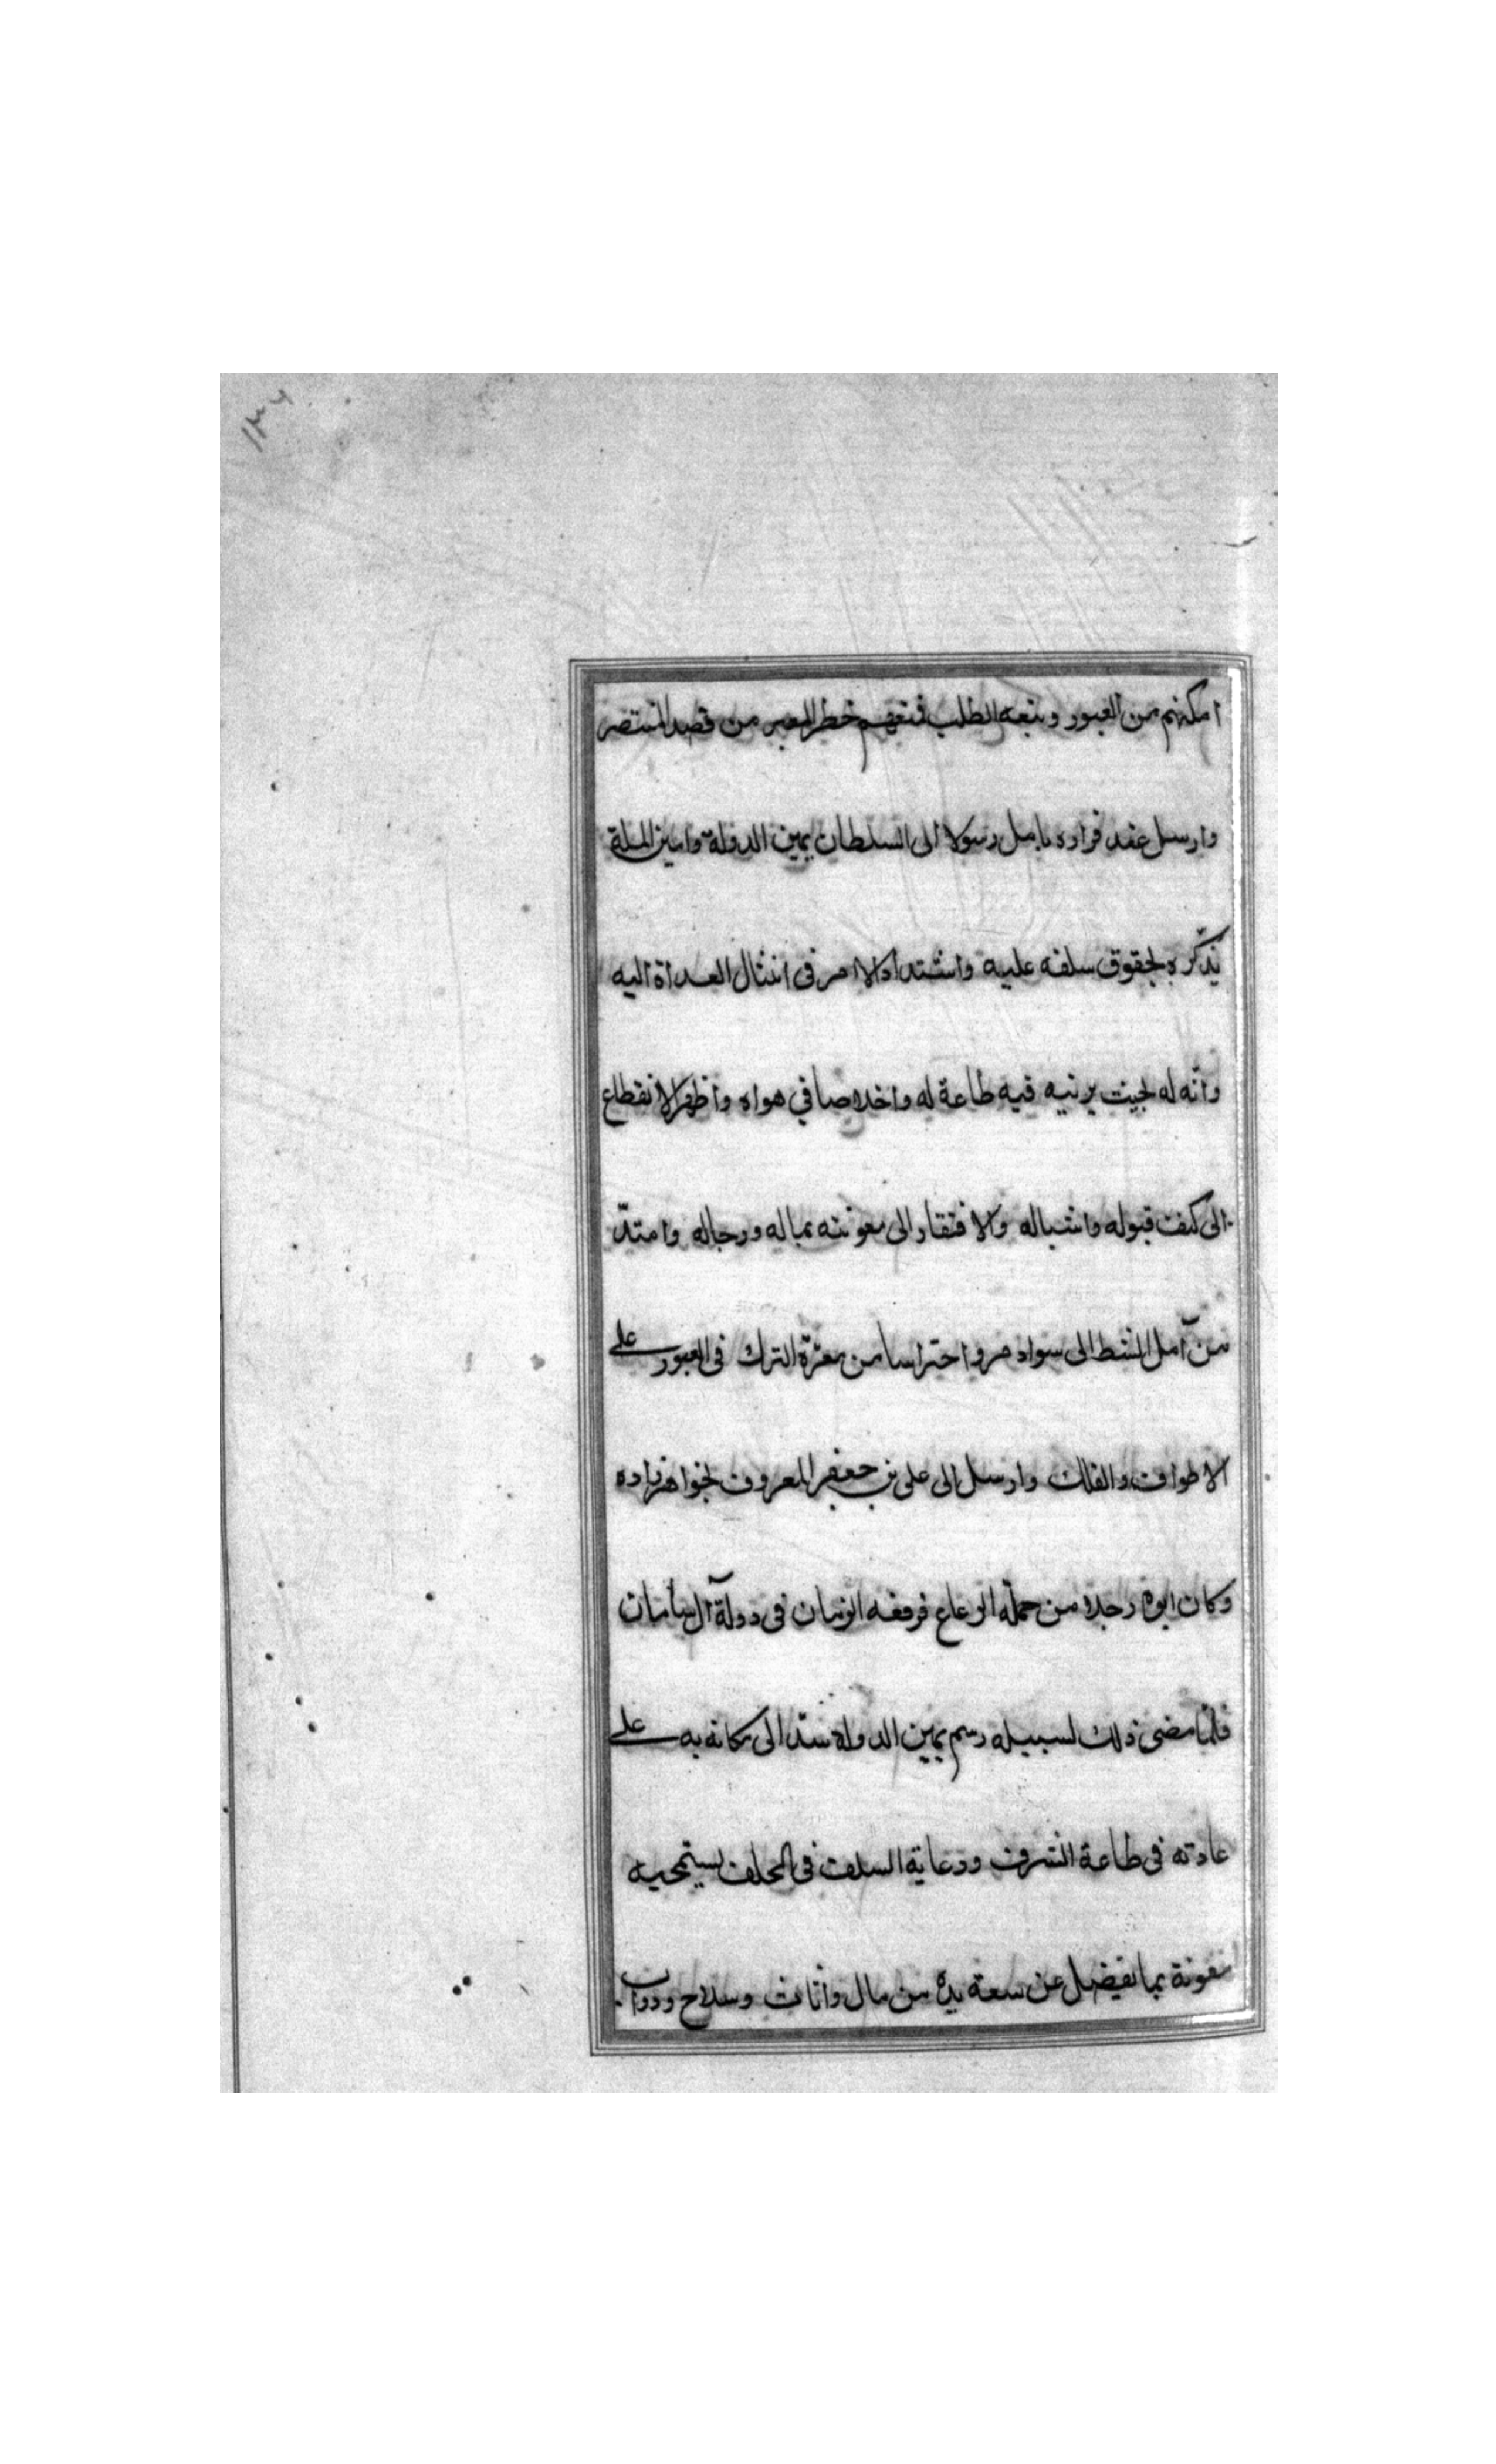 ١٣٦
امكنهم من العبور وتبعه الطلب فمنعهم خطر المعبر من قصد المنتصر
وارسل عند قراره بامل رسولا الى السلطان يمين الدولة وامين الملة
يذكره بحقوق سلفه عليه واشتداد الامر في انثيال العداة اليه
وانه له بحيث يرتبه فيه طاعة له واخلاصا في هواه واظهر الانقطاع
الى كنف قبوله واشباله والافتقار الى معونته بماله ورجاله وامتدّ
من آمل الشط الى سواد مرو احتراسا من معرّة الترك في العبور على
الاطواف والفلك وارسل الى على بن جعفر المعروف بخواهرزاده
وكان ابوه رجلا من جملة الرعاع فرفعه الزمان في دولة آل سامان
فلما مضى ذلك لسبيله رسم يمين الدولة سدّ الى مكانه به على
عادته في طاعة الشرف ورعاية السلف في الخلف يستميحيه
معونة بما يفضل عن سعة يده من مال واثاث وسلاح ودواب